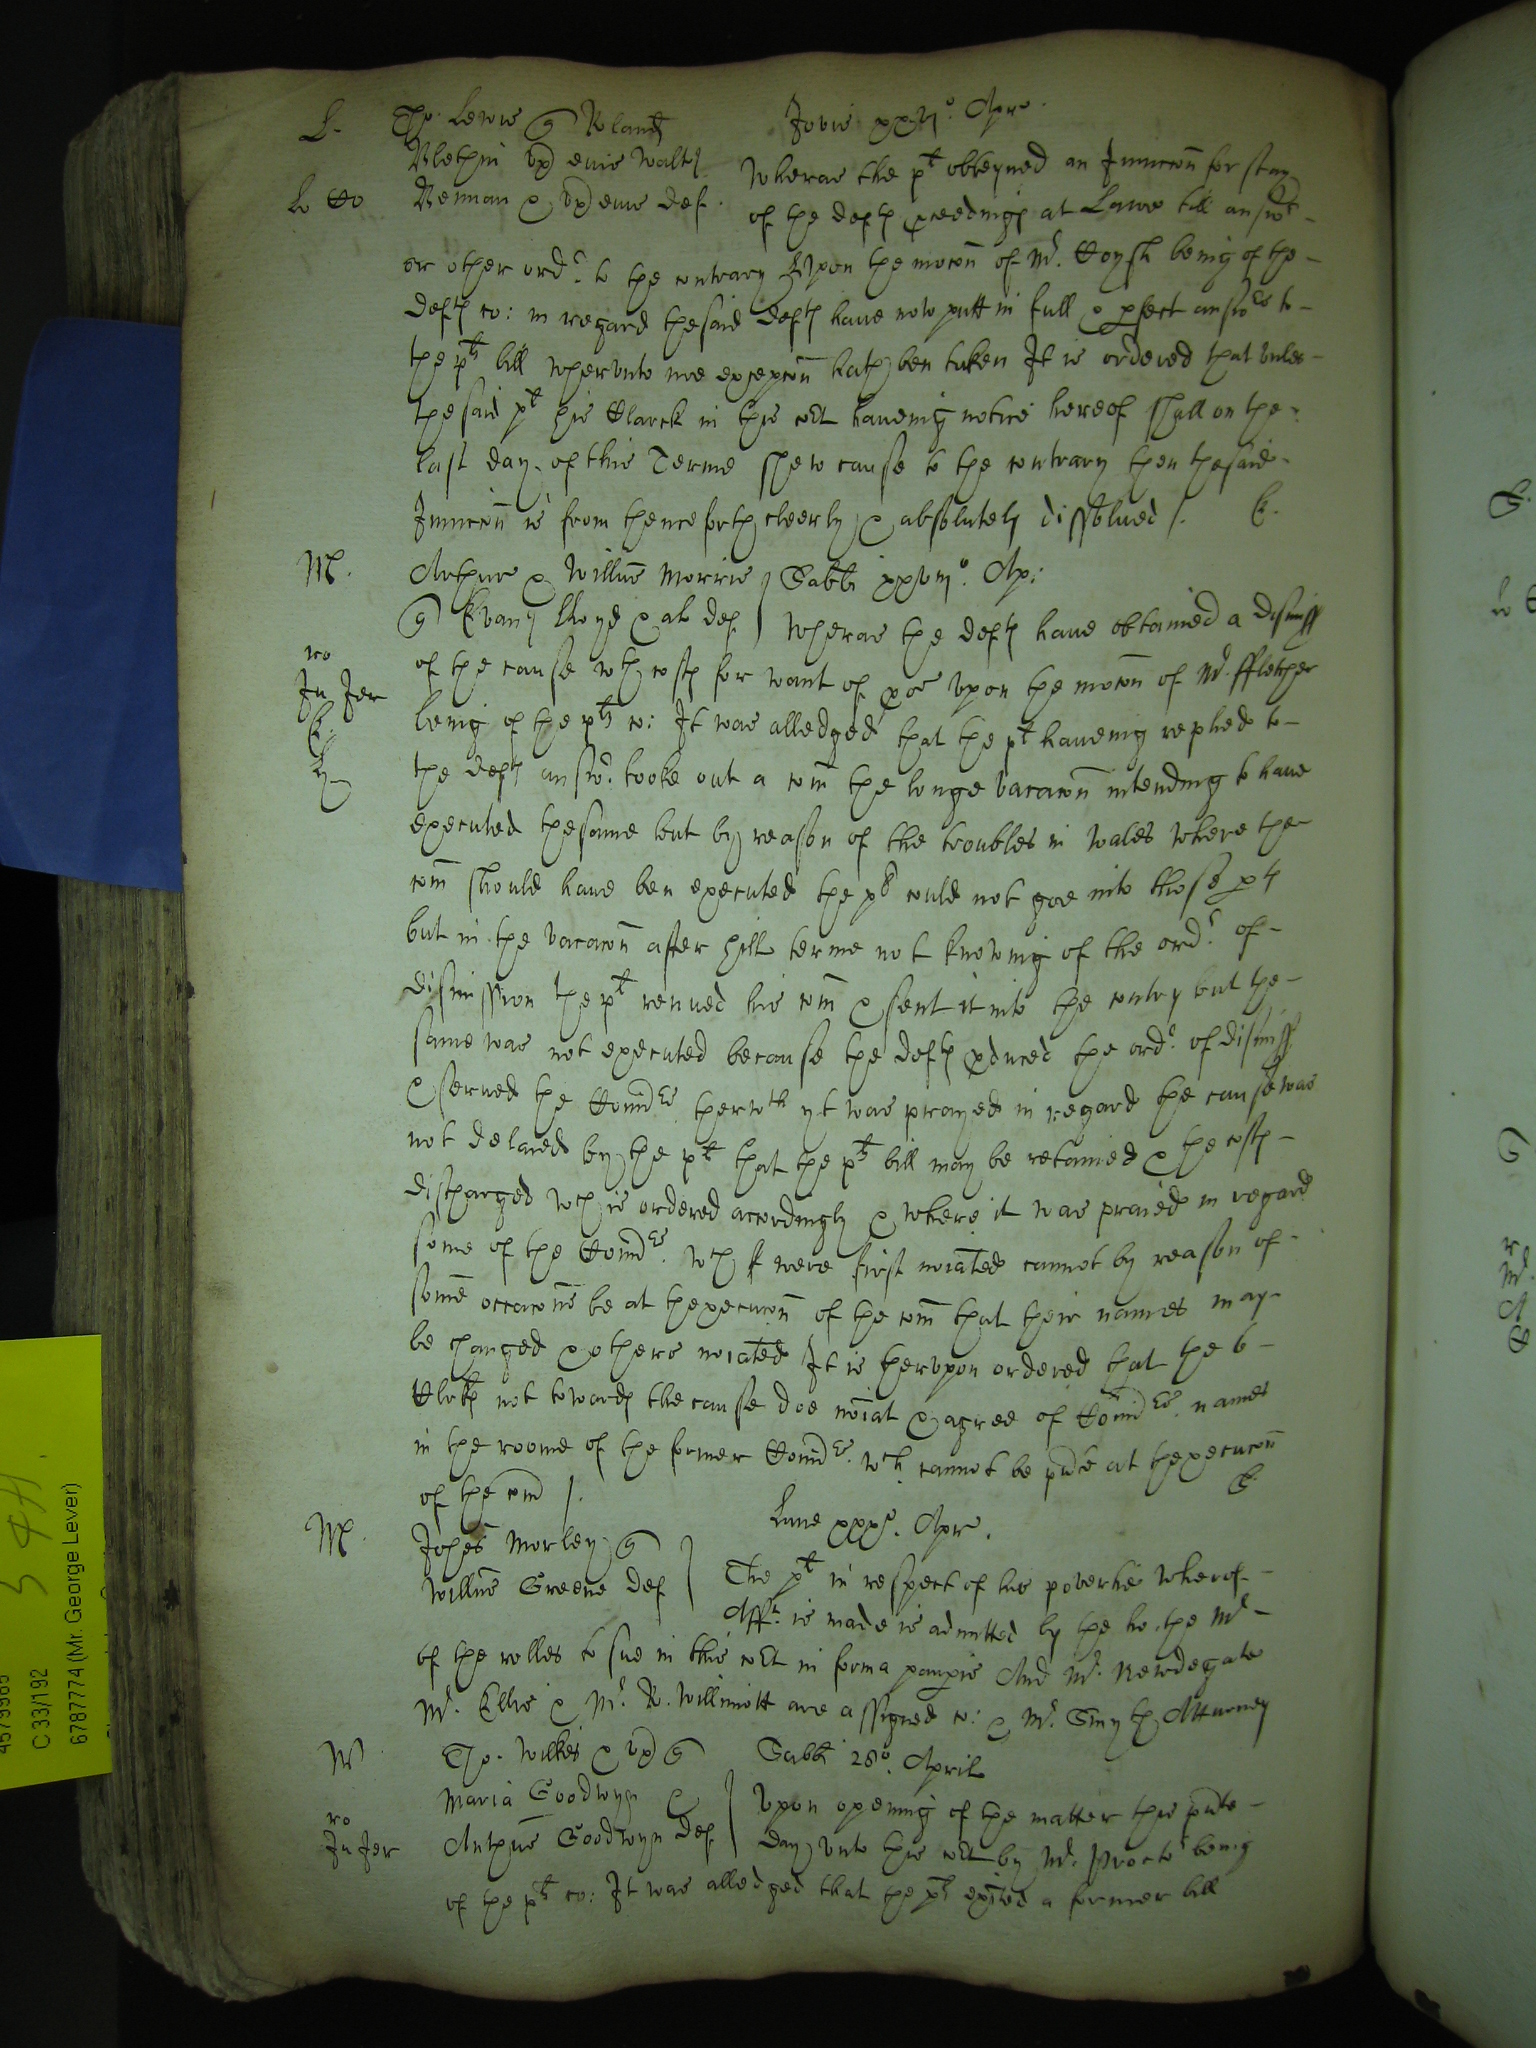 L. Tho. Lewis Roland Jovis xxvjo. Apr.
Blethin ux eius Walt
Wheras the plt obteyned an Iniuncc̃on for stay
Lo Co Benman & ux eius def. of the deftꝭ ꝓceedingꝭ at Lawe till answr
or other ordr. to the contrary Vpon the moc̃on of Mr. Hoysk being of the
deftꝭ co: in regard the said deftꝭ have now putt in full & ꝑfect answers to
the pltꝭ bill wherunto noe excepc̃on hath ben taken It is ordered that unles
the said plt his Clarck in this cort haveing notice hereof shall on the
last day of this Terme shew cause to the contrary then the said
Iniuncc̃on is from thenceforth cleerly & absolutely dissolued /. E.
M. Arthure & Willus Morris Sabbti xxviijo. Ap:
Evans lloyd & al def Wheras the deftꝭ have obtained a dismiss
ro of the cause wth costꝭ for want of ꝓs upon the moc̃on of Mr. ffletcher
Ju Jer being of the pltꝭ co: It was alledged that the plt haveing replied to
E. the deftꝭ answr. tooke out a com̃ the longe vacac̃on intending to have
executed the same but by reason of the troubles in Wales where the
com̃ should have ben executed the plt could not goe into those ꝑtꝭ
but in the vacac̃on after Hill terme not knowing of the ordr. of
dismission the plt renued his com̃ & sent it into the contry but the
same was not executed because the deftꝭ ꝓduced the ordr. of dismiss
& serued the Com̃rs therwth yt was prayed in regard the cause was
not delaied by the plt that the pltꝭ bill may be retained & the costꝭ
discharged wch is ordered accordingly & where it was praied in regard
some of the Com̃rs. wch were first no͠iated cannot by reason of
some occac̃ons be at thexecuc̃on of the com̃ that their names may
be changed & others no͠iated It is therupon ordered that the 6
Clrkꝭ not towardꝭ the cause doe no͠iat & agree of Com̃rs. names
in the roome of the former Com̃rs. wch cannot be pñte at thexecuc̃on
of the com̃ /. E.
M. Johes Morley Lune xxxo. Apr.
Willus Greene def The plt in respect of his povertie wherof
Afft. is made is admitted by the ho. the Mr
of the rolles to sue in this cort in forma pauꝑis And Mr. Newdegate
Mr. Ellis & Mr. R. Willimott are assigned co: & Mr. Smyth Atturney
W Tho. Wilkes & ux Sabbti 28o. April
Maria Goodwyn & Vpon opening of the matter this pñte
ro Ju Jer Anthus Goodwyn def day unto this cort by Mr. Proctor being
of the pltꝭ co: It was alledged that the pltꝭ exited a former bill
C 33/192
6787774 (Mr. George Lever)